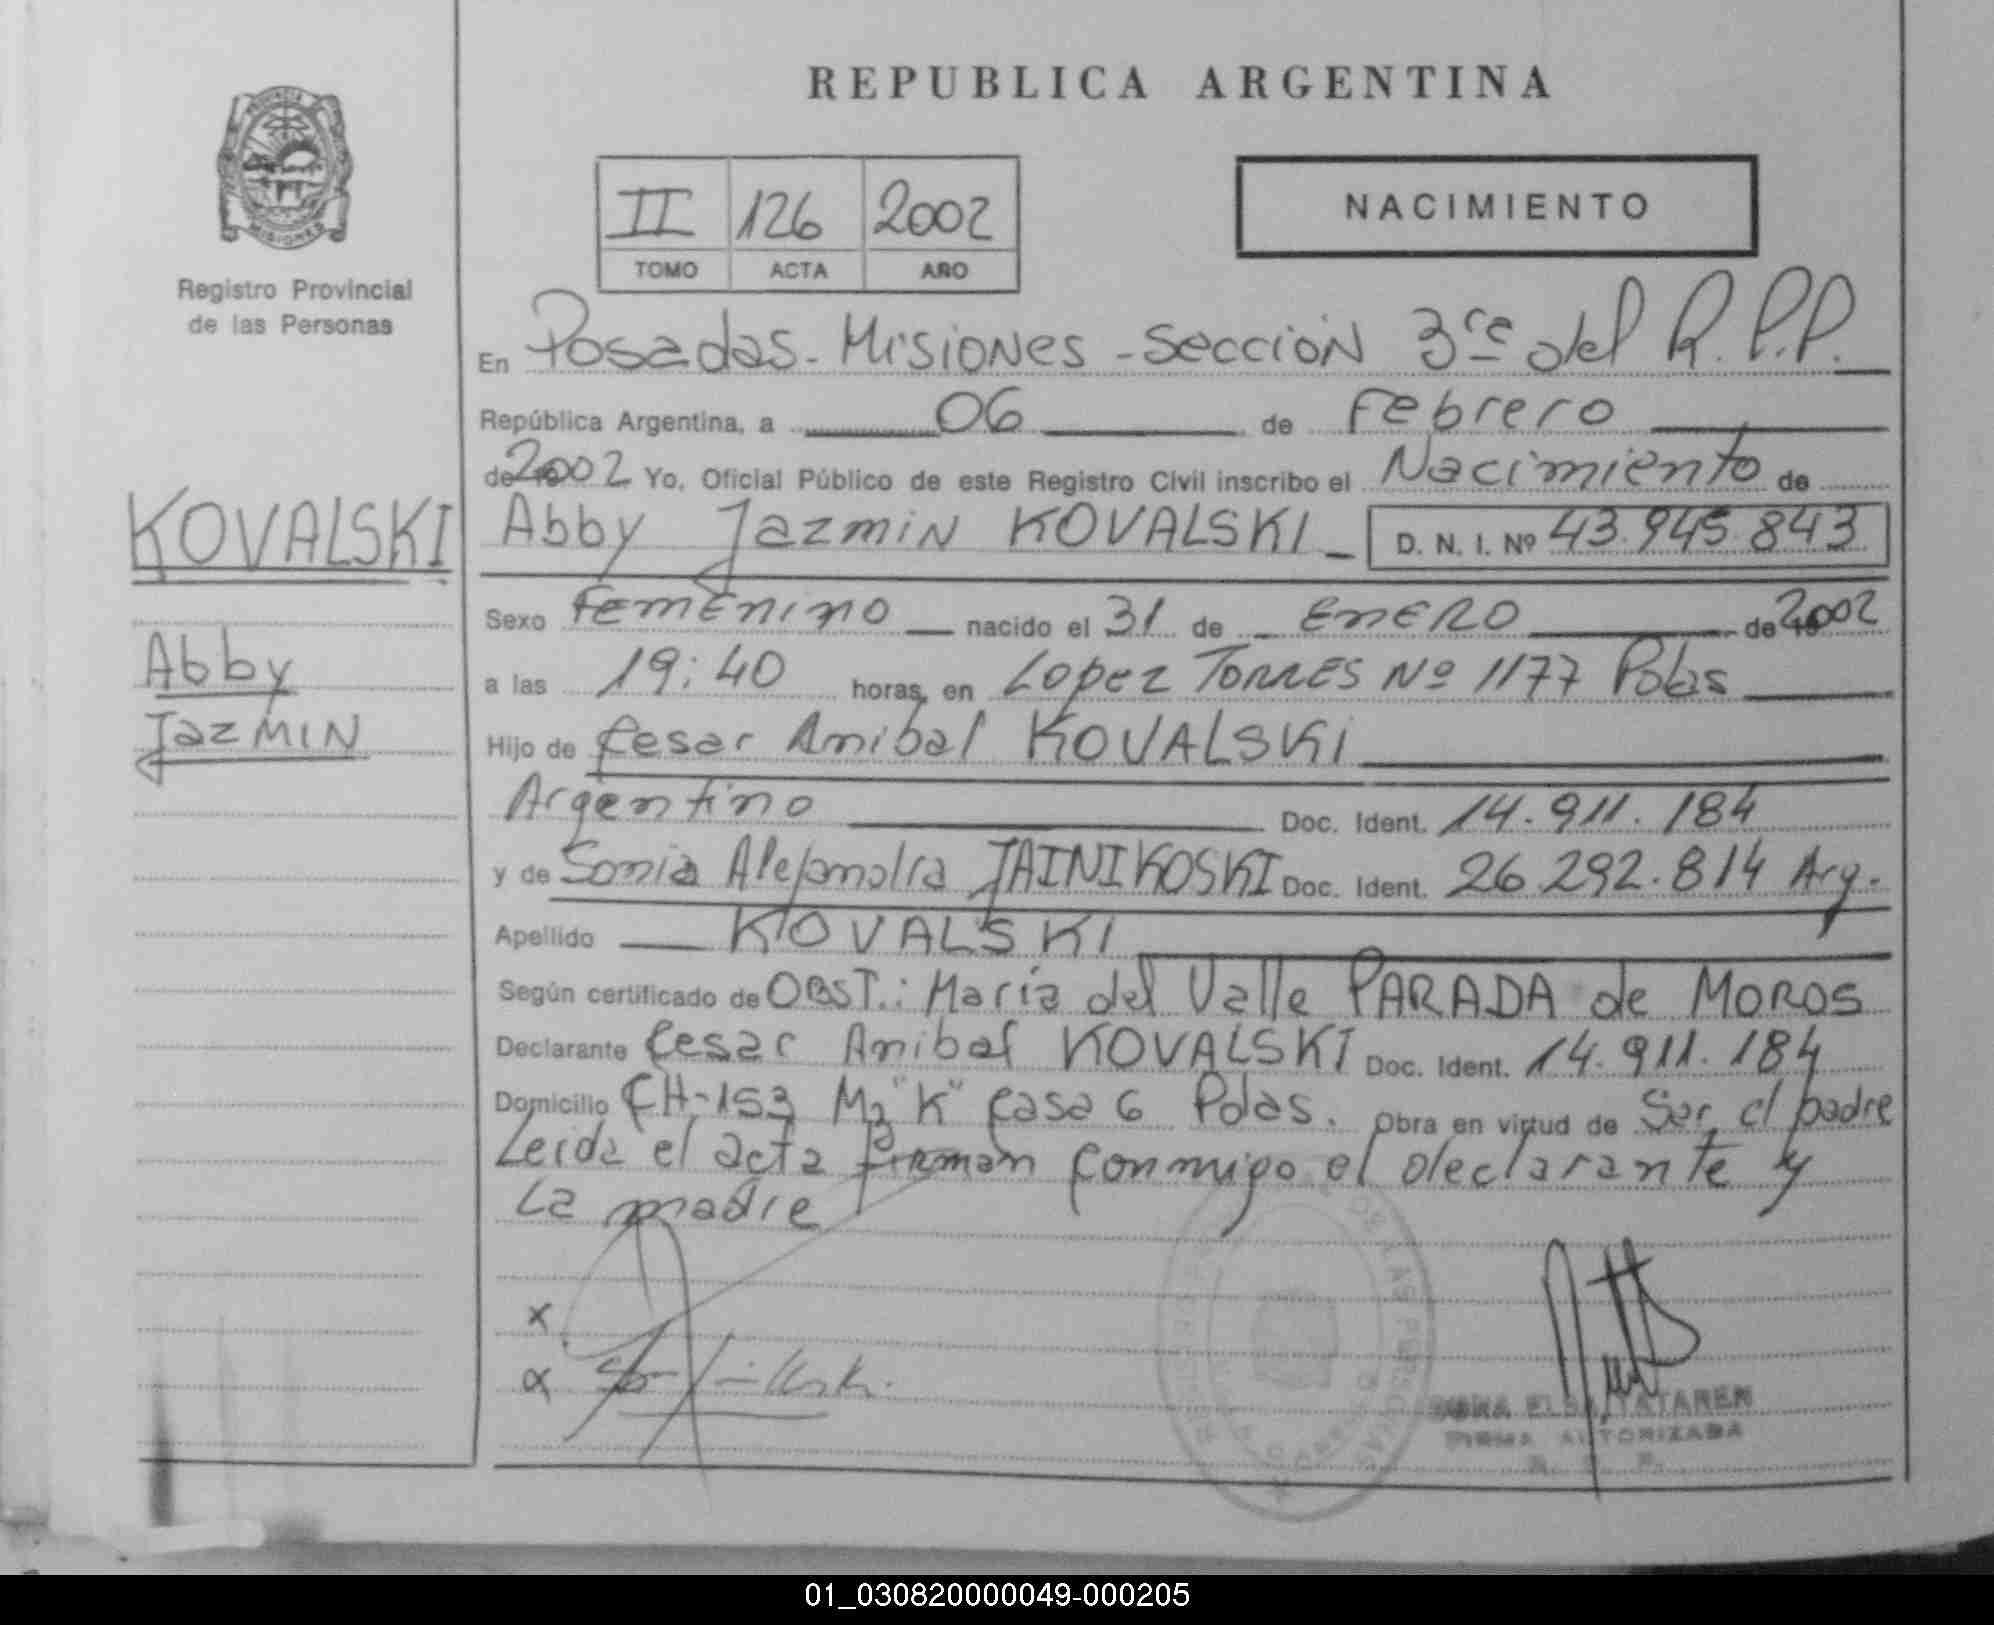 REPUBLICA ARGENTINA
PROVINCIA
MISIONES
Registro Provincial
de las Personas
II 126 2002
TOMO ACTA AÑO
NACIMIENTO
En Posadas - Misiones - Sección 3ra del R.P.P.
República Argentina, a 06 de Febrero
de 2002 Yo, Oficial Público de este Registro Civil inscribo el Nacimiento de
KOVALSKI
Abby Jazmin KOVALSKI D. N. I. Nº 43.945.843
Sexo Femenino nacido el 31 de ENERO de 2002
Abby
a las 19:40 horas, en Lopez TORRES Nº 1177 Pdas
Jazmin
Hijo de Cesar Anibal KOVALSKI
Argentino Doc. Ident. 14.911.184
y de Sonia Alejandra JAINIKOSKI Doc. Ident. 26.292.814 Arg.
Apellido KOVALSKI
Según certificado de OBST.: María del Valle PARADA de MOROS
Declarante Cesar Anibal KOVALSKI Doc. Ident. 14.911.184
Domicilio CH-153 Mz "K" Casa 6 Pdas. Obra en virtud de Ser el padre
Leida el acta firman conmigo el declarante y
La madre
x
x
TATAREN
FIRMA AUTORIZADA
R. P. P.
01_030820000049-000205